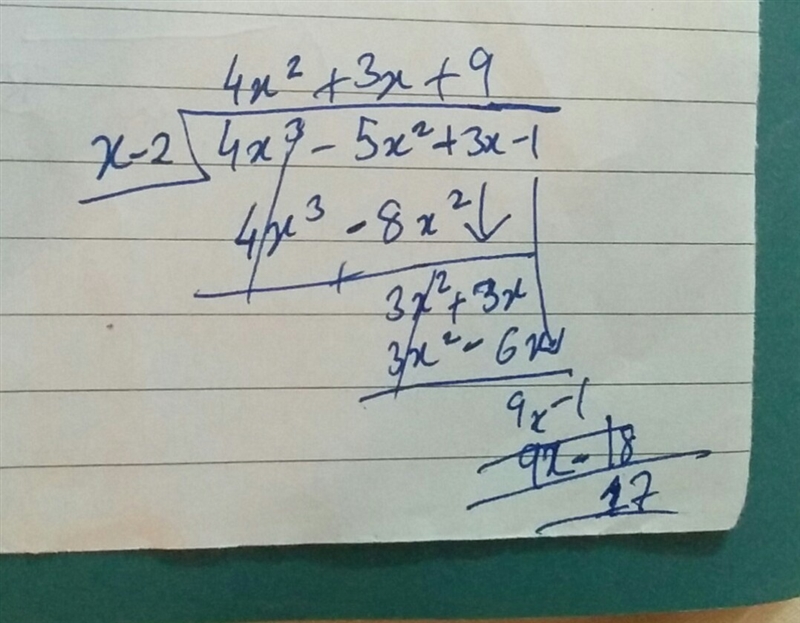 4x² + 3x + 9
x - 2 4x³ - 5x² + 3x - 1
4x³ - 8x² ↓
+
3x² + 3x
3x² - 6x
9x - 1
9x - 18
17